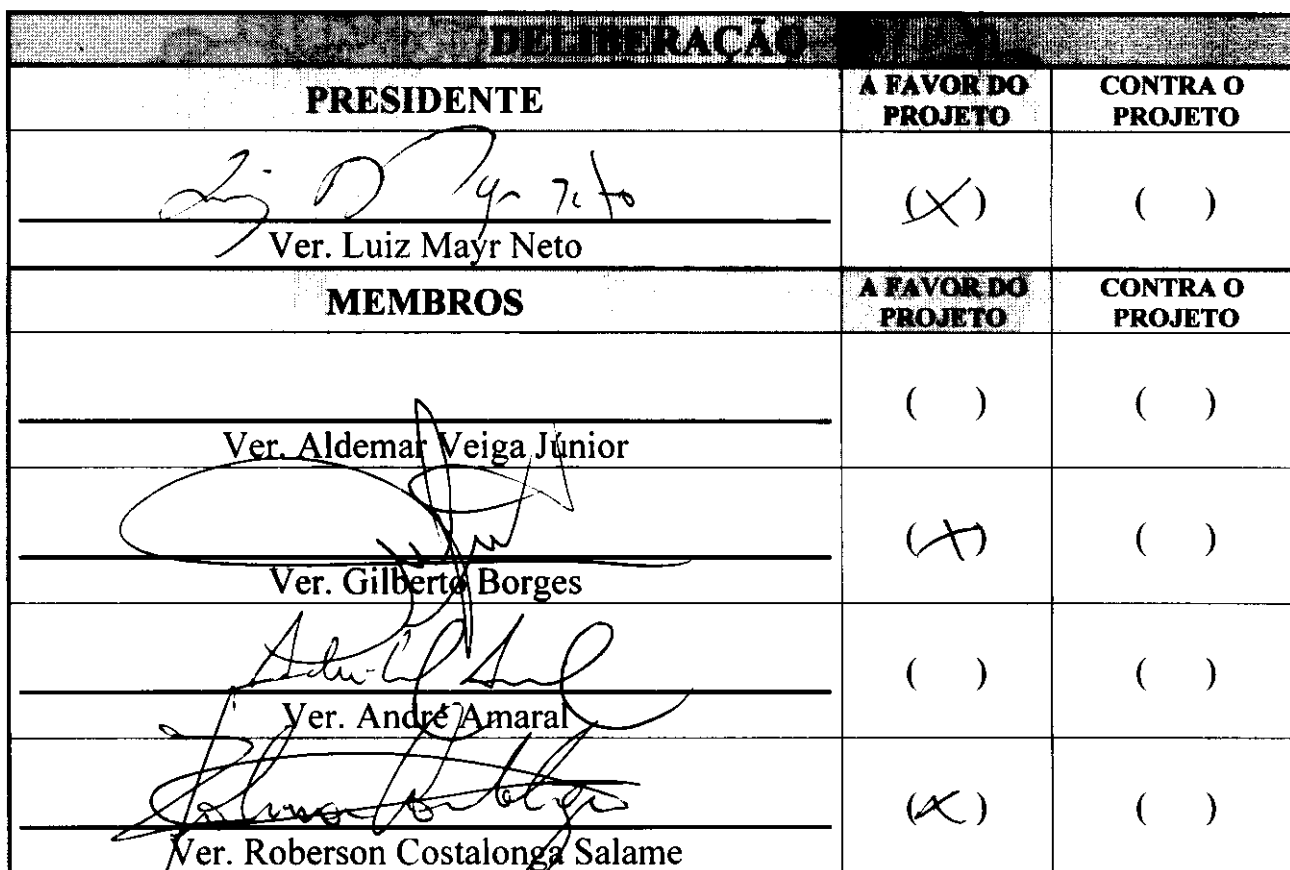 DELIBERAÇÃO
PRESIDENTE A FAVOR DO PROJETO CONTRA O PROJETO
(X) ( )
Ver. Luiz Mayr Neto
MEMBROS A FAVOR DO PROJETO CONTRA O PROJETO
( ) ( )
Ver. Aldemar Veiga Júnior
(X) ( )
Ver. Gilberto Borges
( ) ( )
Ver. André Amaral
(X) ( )
Ver. Roberson Costalonga Salame